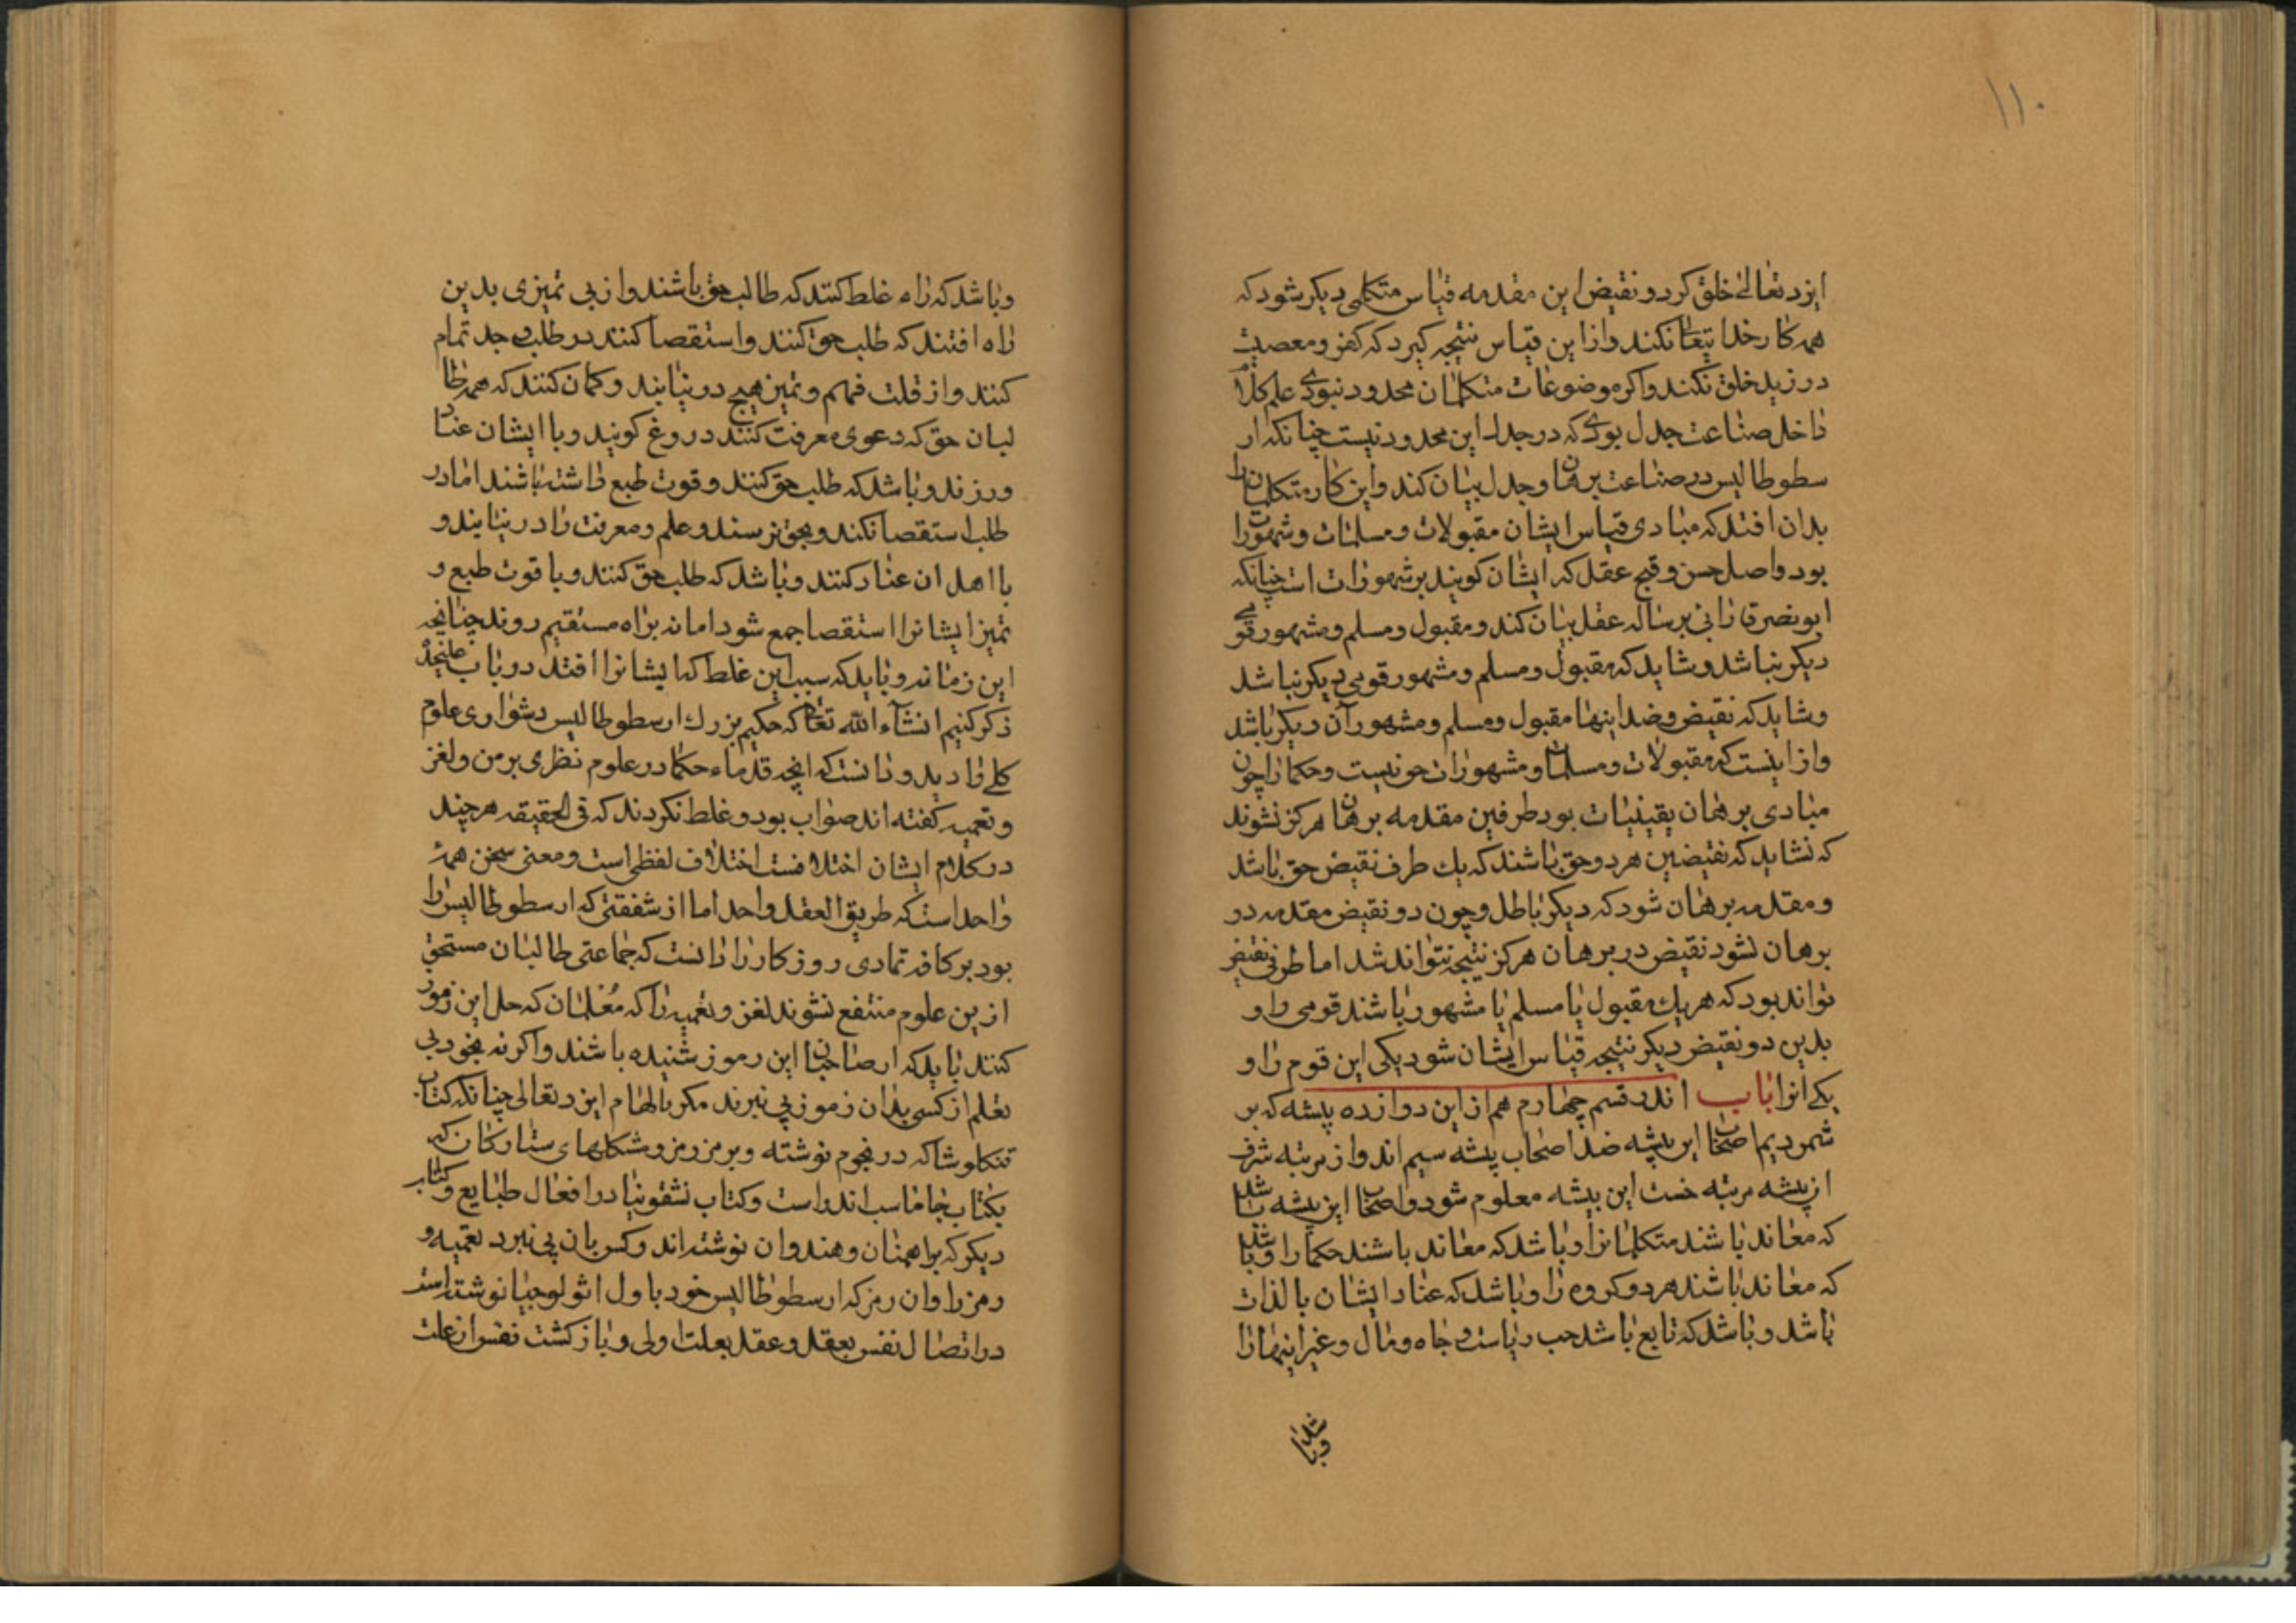 ۱۱۰
ایزد تعالی خلق کرد و نقیض این مقدمه قیاس متکلمی دیکر شود که
همه کار خدا تعا نکند و از این قیاس نتیجه کیرد که کفر و معصیت
در زید خلق نکند و اکر موضوعات متکلمان محدود نبودی علم کلام
داخل صناعت جدل بودی که در جدل این محدود نیست چنانکه ار
سطوطالیس در صناعت برهان و جدل بیان کند و این کار متکلمان را
بدان افتد که مبادی قیاس ایشان مقبولات و مسلمات و مشهورات
بود و اصل حسن و قبح عقل که ایشان کویند بر مشهورات است چنانکه
ابو نصر فارابی برساله عقل بیان کند و مقبول و مسلم و مشهور قومی
دیکر نباشد و شاید که مقبول و مسلم و مشهور قومی دیکر نباشد
و شاید که نقیض و ضد اینها مقبول و مسلم و مشهور آن دیکر باشد
و از اینست که مقبولات و مسلمات و مشهورات حق نیست و حکما را چون
مبادی برهان یقینیات بود طرفین مقدمه برهان هرکز نشوند
که نشاید که نقیضین هر دو حق باشند که یك طرف نقیض حق باشد
و مقدمه برهان شود که دیکر باطل و چون دو نقیض مقدمه در
برهان نشود نقیض در برهان هرکز نتیجه نتواند شد اما طرفی نقیض
تواند بود که هر یك مقبول یا مسلم یا مشهور باشند قومی را و
بدین دو نقیض دیکر نتیجه قیاس ایشان شود یکی این قوم را و
یکی انرا باب اندر قسم چهارم هم از این دوازده پیشه که بر
شمردیم اصحاب این پیشه ضد اصحاب پیشه سیم اند و از مرتبه شرف
از پیشه مرتبه خست این پیشه معلوم شود و اصحاب این پیشه باشد
که معاند باشند متکلمانرا و باشد که معاند باشند حکما را و باشد
که معاند باشند هر دو کروه را و باشد که عناد ایشان بالذات
باشد و باشد که تابع باشد حب ریاست و جاه و مال و غیر اینها را
و باشد
و باشد که راه غلط کنند که طالب حق باشند و از بی تمیزی بدین
راه افتند که طلب حق کنند و استقصا کنند در طلب و جد تمام
کنند و از قلت فهم و تمیز هیچ در نیابند و کمان کنند که همه طا
لبان حق که دعوی معرفت کنند دروغ کویند و با ایشان عناد
ورزند و باشد که طلب حق کنند و قوت طبع داشته باشند اما در
طلب استقصا نکنند و بحق نرسند و علم و معرفت را در نیابند و
با اهل ان عناد کنند و باشد که طلب حق کنند و با قوت طبع و
تمیز ایشانرا استقصا جمع شود اما نه براه مستقیم روند چنانچه
این زمانه و باید که سبب این غلط که ایشانرا افتد در باب علیحده
ذکر کنیم انشآء الله تعا که حکیم بزرك ارسطوطالیس دشواری علوم
کلی را دید و دانست که انچه قدماء حکما در علوم نظری برمز و لغز
و تعمیه کفته اند صواب بود و غلط نکردند که فی الحقیقه هر چند
در کلام ایشان اختلافست اختلاف لفظی است و معنی سخن همه
واحد است که طریق العقل واحد اما از شفقتی که ارسطوطالیس را
بود بر کافه تمادی روزکار را دانست که جماعتی طالبان مستحق
ازین علوم منتفع نشوند لغز و تعمیه را که معلمان که حل این رموز
کنند باید که ار صاحبان این رموز شنیده باشند و اکر نه بخود بی
تعلم از کسی بدان رموز پی نبرند مکر بالهام ایزد تعالی چنانکه کتاب
تنکلوشا که در نجوم نوشته و برمز رمز و شکلهای ستارکان که
بکتاب جاماسب اندر است و کتاب نشقونیا در افعال طبایع و کتاب
دیکر که براهمنان و هندوان نوشته اند و کس بان پی نبرد تعمیه و
رمز را و ان رمز که ارسطوطالیس خود باول اثولوجیا نوشته است
در اتصال نفس بعقل و عقل بعلت اولی و باز کشت نفس از علت